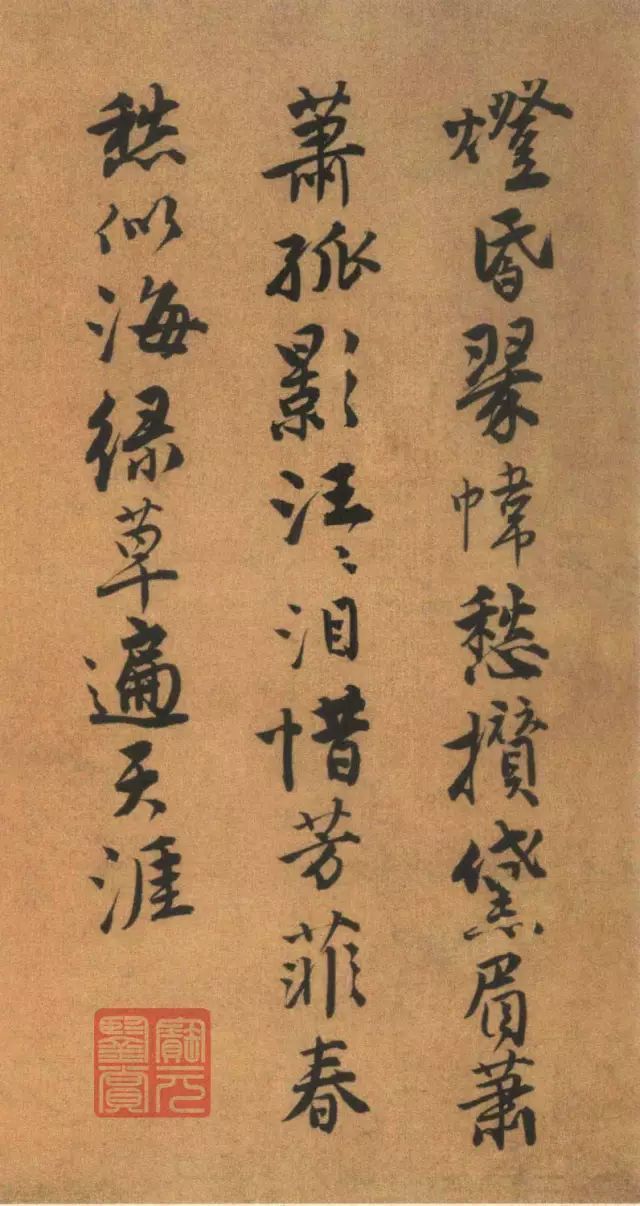 燈昏翠幃愁攢黛眉蕭
蕭孤影汪〻泪惜芳菲春
愁似海綠草遍天涯
寶元
鑒賞